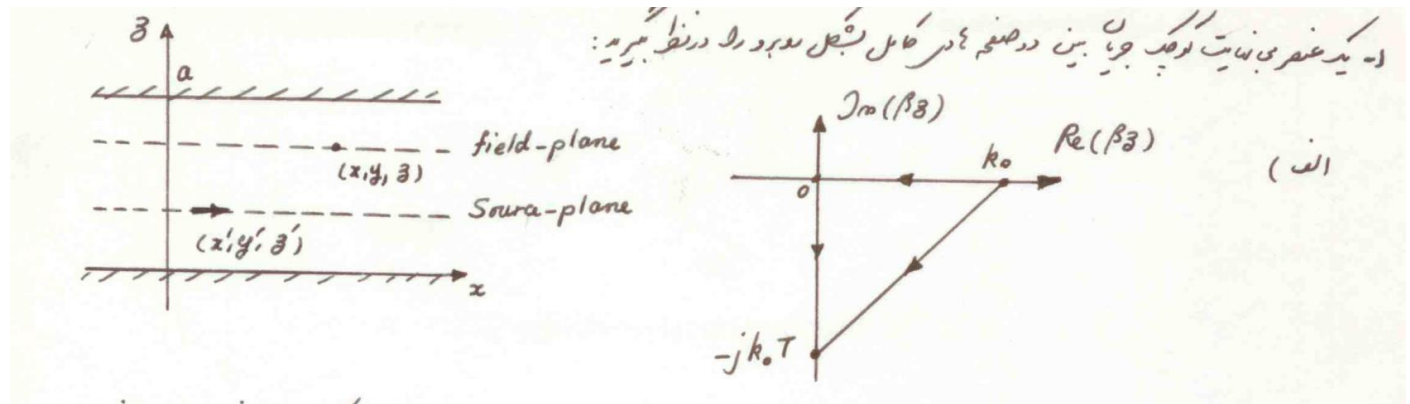 ۱- یک عنصر بی نهایت کوچک جریان بین دو صفحه هادی کامل بشکل روبرو را در نظر بگیرید:
الف)
z
a
field-plane
(x,y,z)
Source-plane
(x',y',z')
x
Im(βz)
Re(βz)
k₀
0
-jk₀T